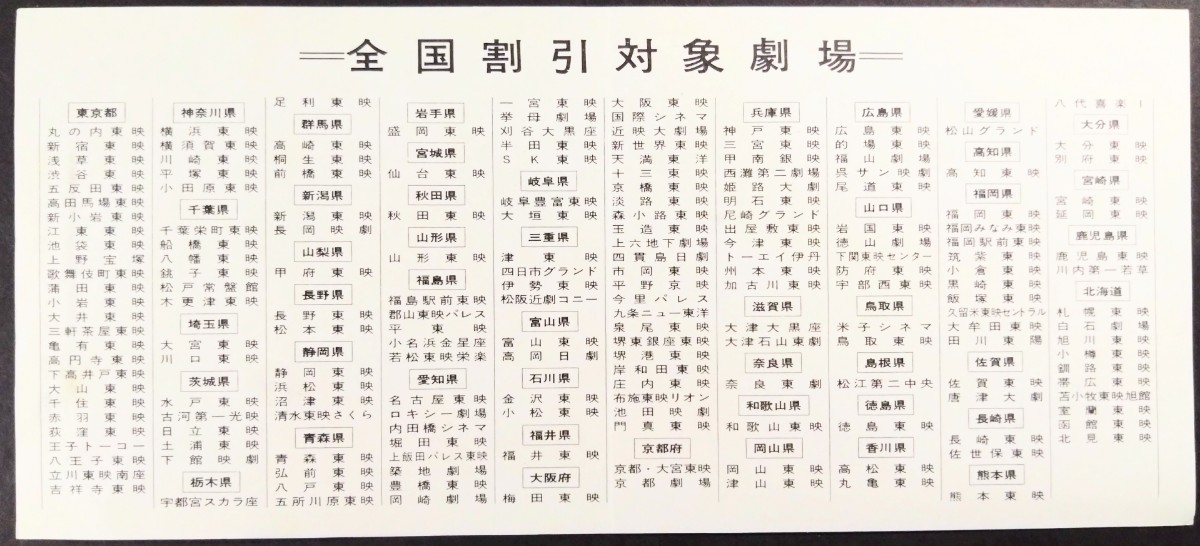 全国割引対象劇場
東京都
丸の内東映
新宿東映
浅草東映
渋谷東映
五反田東映
高田馬場東映
新小岩東映
江東東映
池袋東映
上野宝塚
歌舞伎町東映
蒲田東映
小岩東映
大井東映
三軒茶屋東映
亀有東映
高円寺東映
下高井戸東映
大山東映
千住東映
赤羽東映
荻窪東映
王子トーコー
八王子東映
立川東映南座
吉祥寺東映
神奈川県
横浜東映
横須賀東映
川崎東映
平塚東映
小田原東映
千葉県
千葉栄町東映
船橋東映
八幡東映
銚子東映
松戸常盤館
木更津東映
埼玉県
大宮東映
川口東映
茨城県
水戸東映
古河第一光映
日立東映
土浦東映
下館映劇
栃木県
宇都宮スカラ座
足利東映
群馬県
高崎東映
桐生東映
前橋東映
新潟県
新潟東映
長岡映劇
山梨県
甲府東映
長野県
長野東映
松本東映
静岡県
静岡東映
浜松東映
沼津東映
清水東映さくら
青森県
青森東映
弘前東映
八戸東映
五所川原東映
岩手県
盛岡東映
宮城県
仙台東映
秋田県
秋田東映
山形県
山形東映
福島県
福島駅前東映
郡山東映パレス
平東映
小名浜金星座
若松東映栄楽
愛知県
名古屋東映
ロキシー劇場
内田橋シネマ
堀田東映
上飯田パレス東映
築地劇場
豊橋東映
岡崎劇場
一宮東映
挙母劇場
刈谷大黒座
半田東映
SK東映
岐阜県
岐阜豊富東映
大垣東映
三重県
津東映
四日市グランド
伊勢東映
松阪近劇コニー
富山県
富山東映
高岡日劇
石川県
金沢東映
小松東映
福井県
福井東映
大阪府
梅田東映
大阪東映
国際シネマ
近映大劇場
新世界東映
天満東洋
十三東映
京橋東映
淡路東映
森小路東映
玉造東映
上六地下劇場
四貫島日劇
市岡東映
平野京映
今里パレス
九条ニュー東洋
泉尾東映
堺東銀座東映
堺港東映
岸和田東映
庄内東映
布施東映リオン
池田映劇
門真東映
京都府
京都・大宮東映
京都劇場
兵庫県
神戸東映
三宮東映
甲南銀映
西灘第二劇場
姫路大劇
明石東映
尼崎グランド
出屋敷東映
今津東映
トーエイ伊丹
州本東映
加古川東映
滋賀県
大津大黒座
大津石山東劇
奈良県
奈良東劇
和歌山県
和歌山東映
岡山県
岡山東映
津山東映
広島県
広島東映
的場東映
福山劇場
呉サン映劇
尾道東映
山口県
岩国東映
徳山劇場
下関東映センター
防府東映
宇部西東映
鳥取県
米子シネマ
鳥取東映
島根県
松江第二中央
徳島県
徳島東映
香川県
高松東映
丸亀東映
愛媛県
松山グランド
高知県
高知東映
福岡県
福岡東映
福岡みなみ東映
福岡駅前東映
筑紫東映
小倉東映
黒崎東映
飯塚東映
久留米東映セントラル
大牟田東映
田川東陽
佐賀県
佐賀東映
唐津大劇
長崎県
長崎東映
佐世保東映
熊本県
熊本東映
八代喜楽
大分県
大分東映
別府東映
宮崎県
宮崎東映
延岡東映
鹿児島県
鹿児島東映
川内第一若草
北海道
札幌東映
白石劇場
旭川東映
小樽東映
釧路東映
帯広東映
苫小牧東映旭館
室蘭東映
函館東映
北見東映